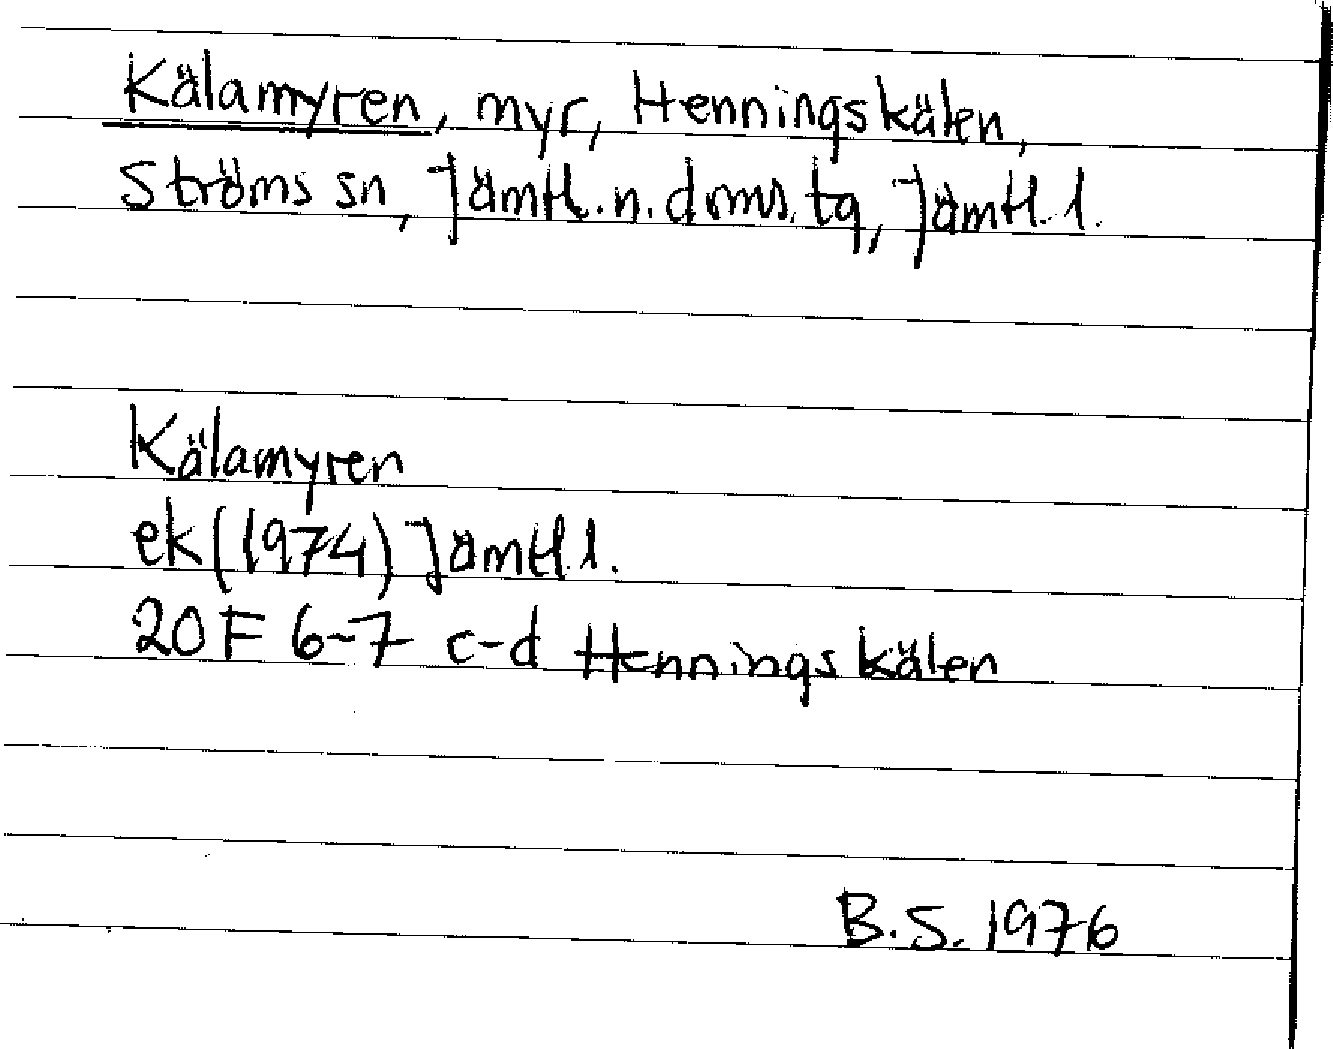 Kälamyren, myr, Henningskälen,
Ströms sn, Jämtl. n. doms. tg, Jämtl. l.
Kälamyren
ek (1974) Jämtl. l.
20 F 6-7 c-d Henningskälen
B.S. 1976